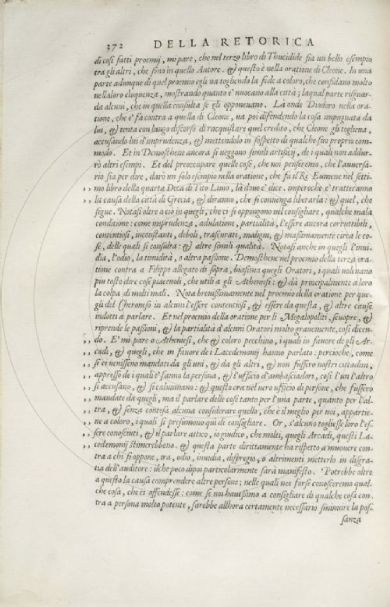 272 DELLA RETORICA
di così fatti proemij, mi pare, che nel terzo libro di Thucidide sia un bello esempio
tra gli altri, che sono in quello Autore. & questo è nella oratione di Cleone. In una
parte adunque di quel proemio egli va togliendo la fede a coloro, che confidano molto
nella loro eloquenza, mostrando quanto è nuocano alla città; laqual parte risguar-
da alcuni, che in quella consulta se gli opponevano. La onde Diodoto nella ora-
tione, che è fatta contra a quella di Cleone, va poi difendendo la cosa
lui, & tenta con lungo discorso di racquistare quel credito, che Cleone gli toglieva,
accusando lui d'imprudenza, & mettendolo in sospetto di qualche suo proprio com-
modo. Et in Demostene ancora si veggono simili artificij, de i quali non addur-
rò altri esempi. Et del preoccupare quelle cose, che noi pensiamo, che l'avversa-
rio sia per dire, darò un solo esempio nella oratione, che fu il Re Eumene nel setti-
mo libro della quarta Deca di Tito Livio, là dove è dice. imperoche è tratteranno
la causa della città di Grecia, & diranno, che si convenga liberarla; & quel, che
segue. Notasi oltre a ciò in quegli, che ci si oppongono nel consigliare, qualche mala
conditione: come imprudenza, adulatione, partialità, l'essere ancora corrottibili,
contentiosi, incostanti, deboli, trascurati, maligni, & massimamente circa le co-
se, delle quali si consulta: & altre simili qualità. Notasi anche in quegli l'invi-
dia, l'odio, la timidità, o altra passione. Demosthene nel proemio della terza ora-
tione contra a Filippo allegato di sopra, biasima quegli Oratori, i quali volevano
più tosto dire cose piacevoli, che utili a gli Atheniesi: & dà principalmente a loro
la colpa di molti mali. Nota brevissimamente nel proemio della oratione per que-
gli del Cheroneso in alcuni l'essere contentiosi, & l'essere da questa, & altre cause
indotti a parlare. Et nel proemio della oratione per li Megalopoliti, scuopre, &
riprende le passioni, & la partialità d'alcuni Oratori molto gravemente, così dicen-
do. E' mi pare o Atheniesi, che & coloro pecchino, i quali in favore de gli Ar-
cadi, & quegli, che in favore de i Lacedemonij hanno parlato: percioche, come
se ei venissero mandati da gli uni, & da gli altri, & non fussero nostri cittadini,
appresso de i quali l'una & l'altra l'ufficio d'ambasciadori, così l'un l'altro
si accusano, & si calunniano: & questo era nel vero ufficio di persone, che fussero
mandate da quegli, ma il parlare delle cose tanto per l'una parte, quanto per l'al-
tra, & senza contesa alcuna considerare quello, che è il meglio per noi, appartie-
ne a coloro, i quali si presumono qui di consigliare. Or, s'alcuno togliesse loro l'es-
sere conosciuti, & il parlare attico, io giudico, che molti, quegli Arcadi, questi La-
cedemonij stimerebbono. & questa parte direttamente ha rispetto a muovere con-
tra a chi si oppone, ira, odio, invidia, dispregio, o altrimenti metterlo in disgra-
tia dell'auditore: il che poco dipoi particolarmente sarà manifesto. Potrebbe oltre
a questo la causa comprendere altre persone; nelle quali noi forse conosceremo qual-
che cosa, che ci offendesse: come se noi havessimo a consigliare di qualche cosa con-
tra a persona molto potente, sarebbe allhora certamente necessario sminuire la pos-
sanza